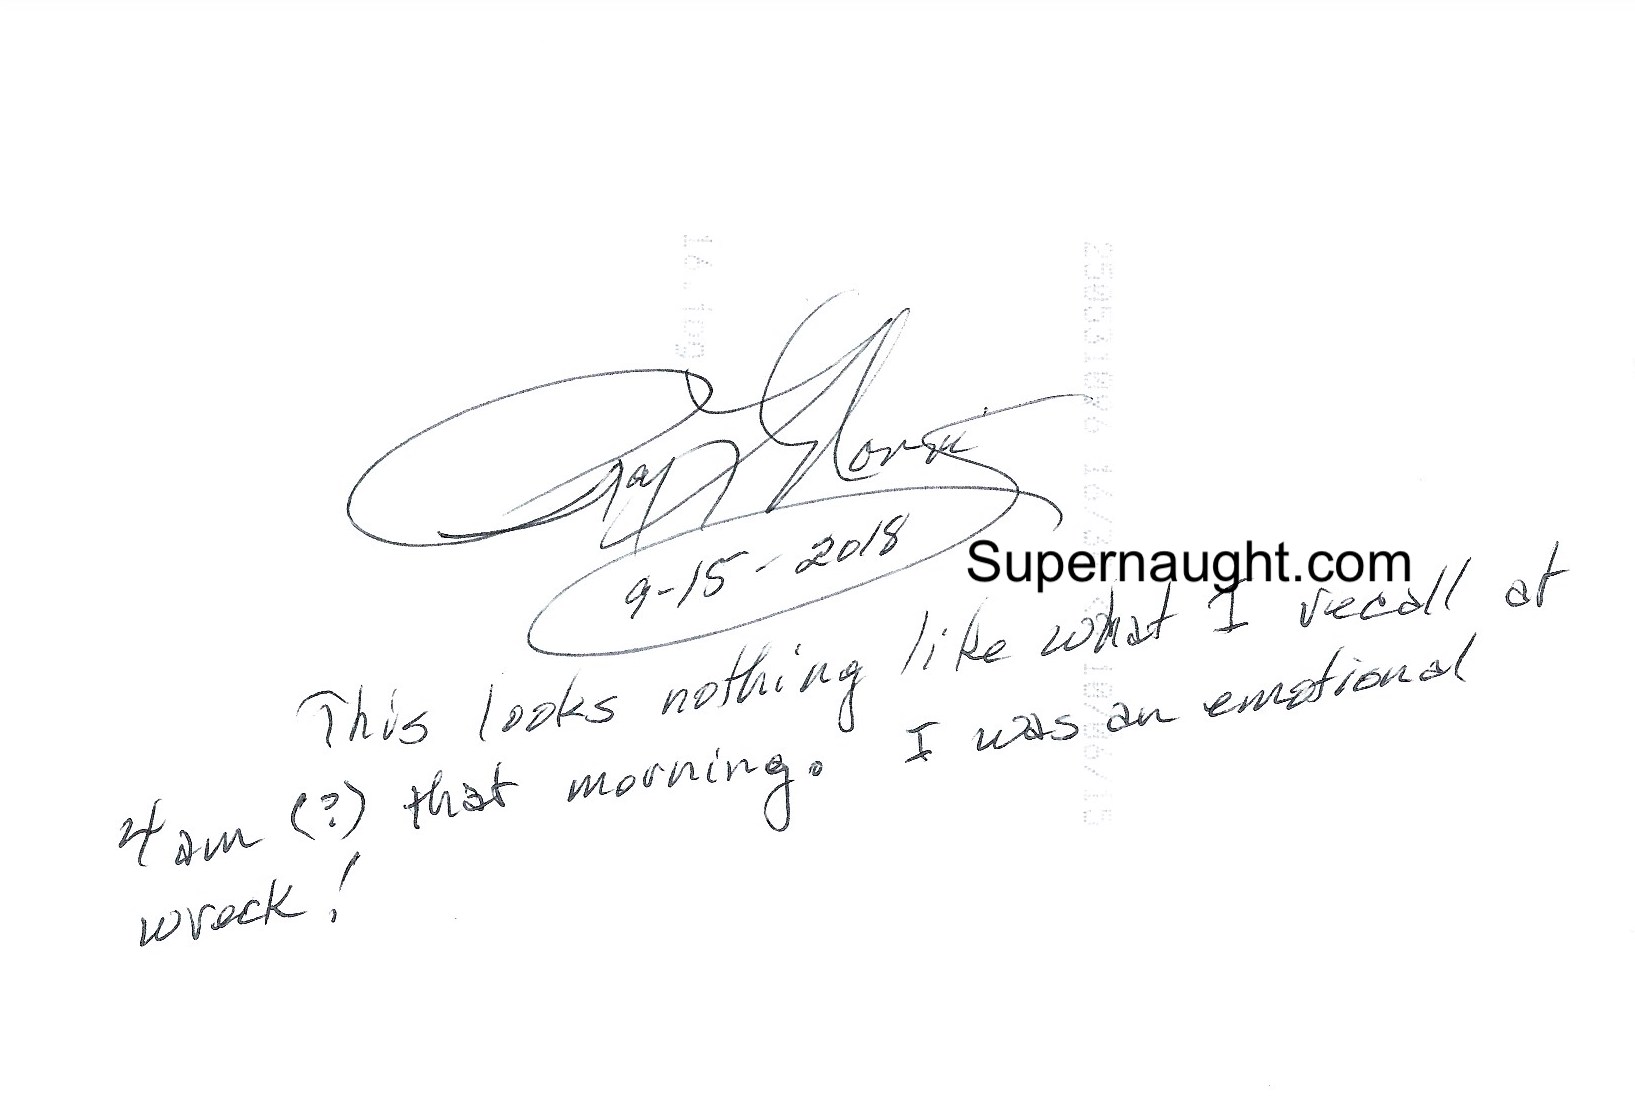 16.jpg
9-15-2018
Supernaught.com
This looks nothing like what I recall at
4 am (?) that morning. I was an emotional
wreck!